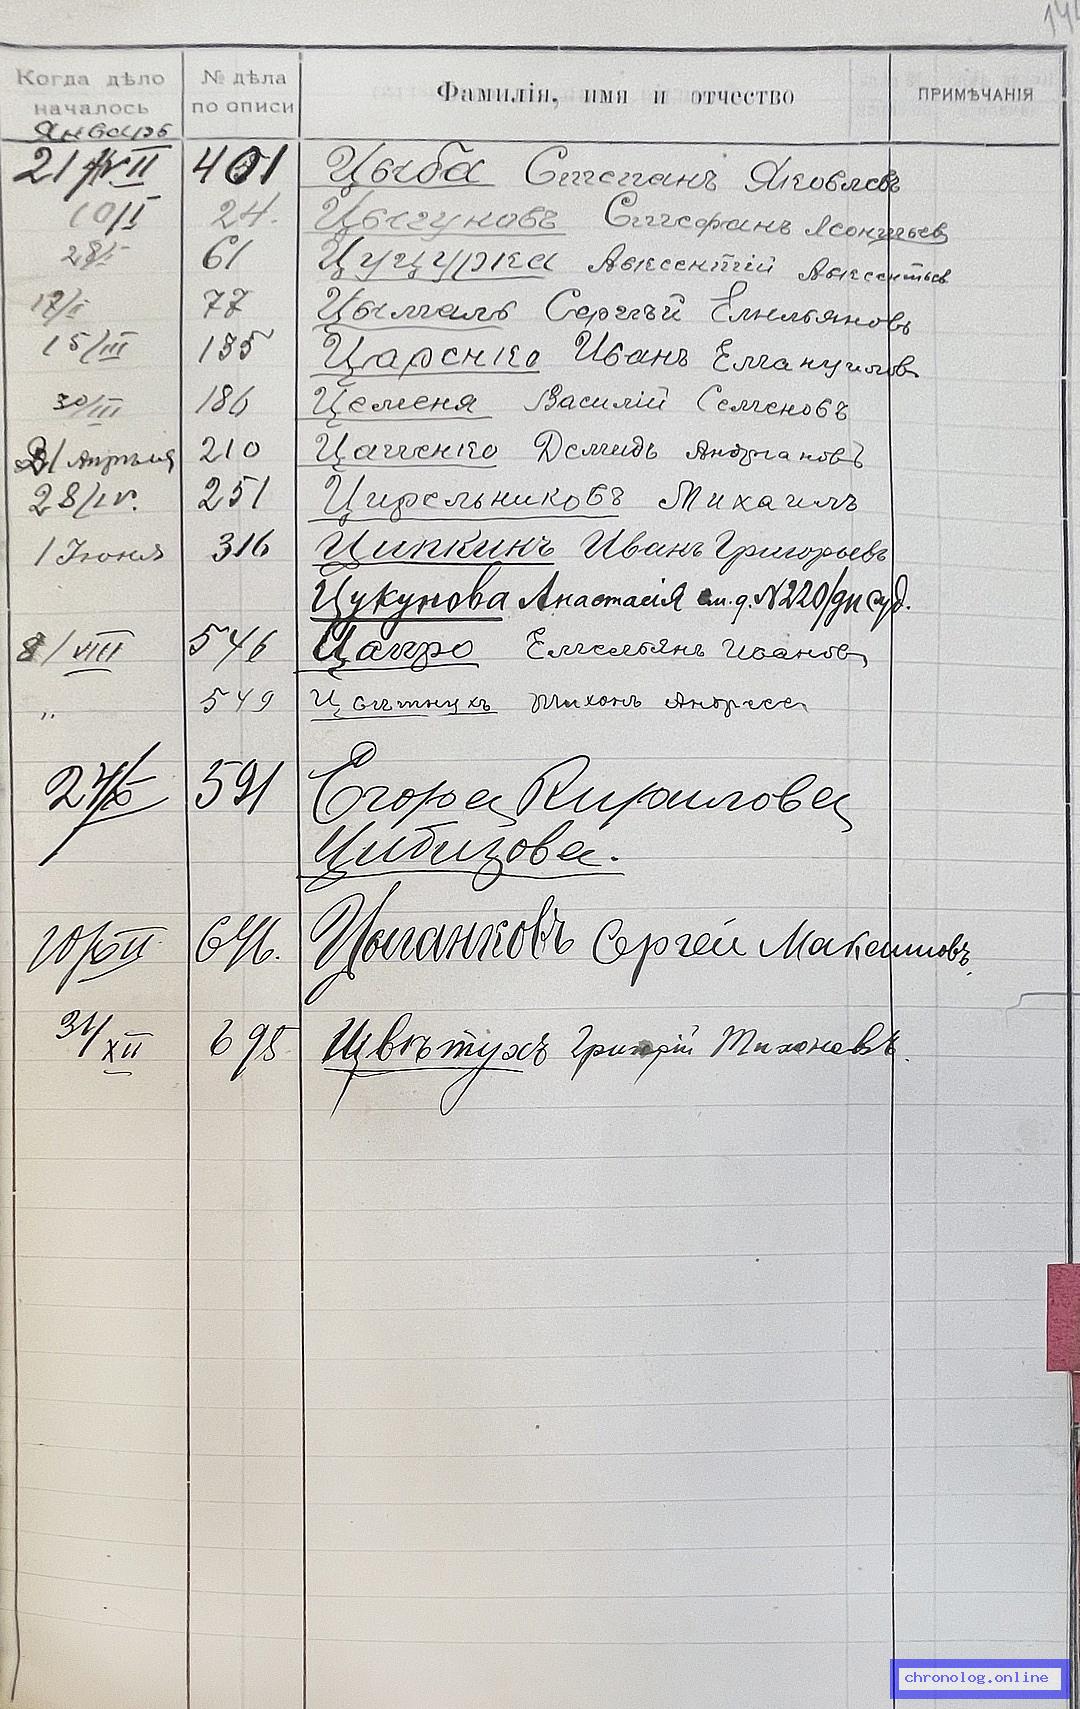 Когда дѣло началось
№ дѣла по описи
Фамилія, имя и отчество
ПРИМѢЧАНІЯ
Январь
21 VII 401 Цыба Степанъ Яковлевъ
10/I 24. Цыгуновъ Стефанъ Леонтьев
28/I 61 Цуцурка Авксентій Авксентьев
17/II 77 Цымаль Сергѣй Емельяновъ
15/III 135 Царенко Иванъ Емануилов
30/III 186 Цеменя Василій Семеновъ
21 Апрѣля 210 Цащенко Демидъ Андриановъ
28/IV. 251 Цирельниковъ Михаилъ
1 Іюня 316 Ципкинъ Иванъ Григорьевъ
Цукунова Анастасія см. д. N220/ди суд.
8/VIII 546 Цапро Емельянъ Иванов
" 549 Цвѣтнухъ Тихонъ Андреев
24/X 591 Егора Кирилова
Цибизова.
10/XII 646. Цыганковъ Сергей Максимовъ.
31/XII 695 Цвѣтухъ Григорій Тихоновъ.
chronolog.online